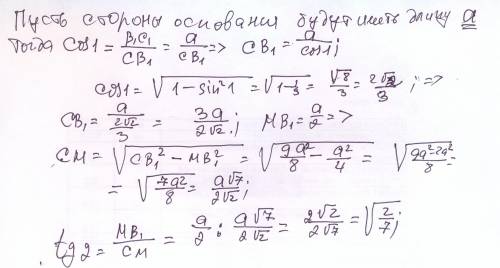 Пусть стороны основания будут иметь длину a
тогда cos1 = B₁C₁/CB₁ = a/CB₁ => CB₁ = a/cos1;
cos1 = √(1-sin²1) = √(1-1/3) = √8/3 = 2√2/3; =>
CB₁ = a/(2√2/3) = 3a/(2√2); MB₁ = a/2 =>
CM = √(CB₁² - MB₁²) = √(9a²/8 - a²/4) = √((9a²-2a²)/8) =
= √(7a²/8) = a√7/(2√2);
tg2 = MB₁/CM = a/2 : a√7/(2√2) = 2√2/(2√7) = √(2/7);